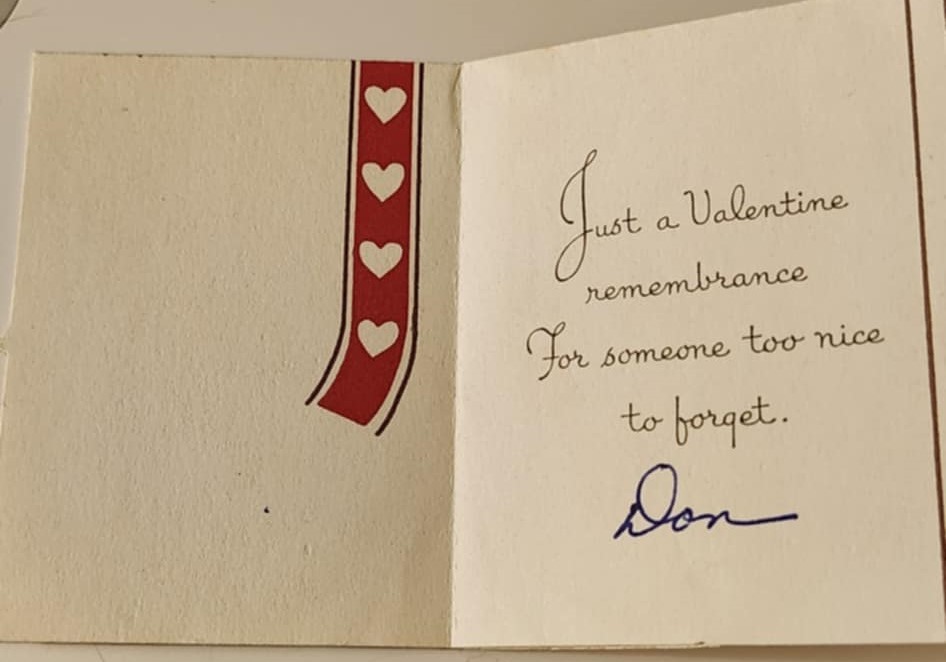 Just a Valentine
remembrance
For someone too nice
to forget.
Don